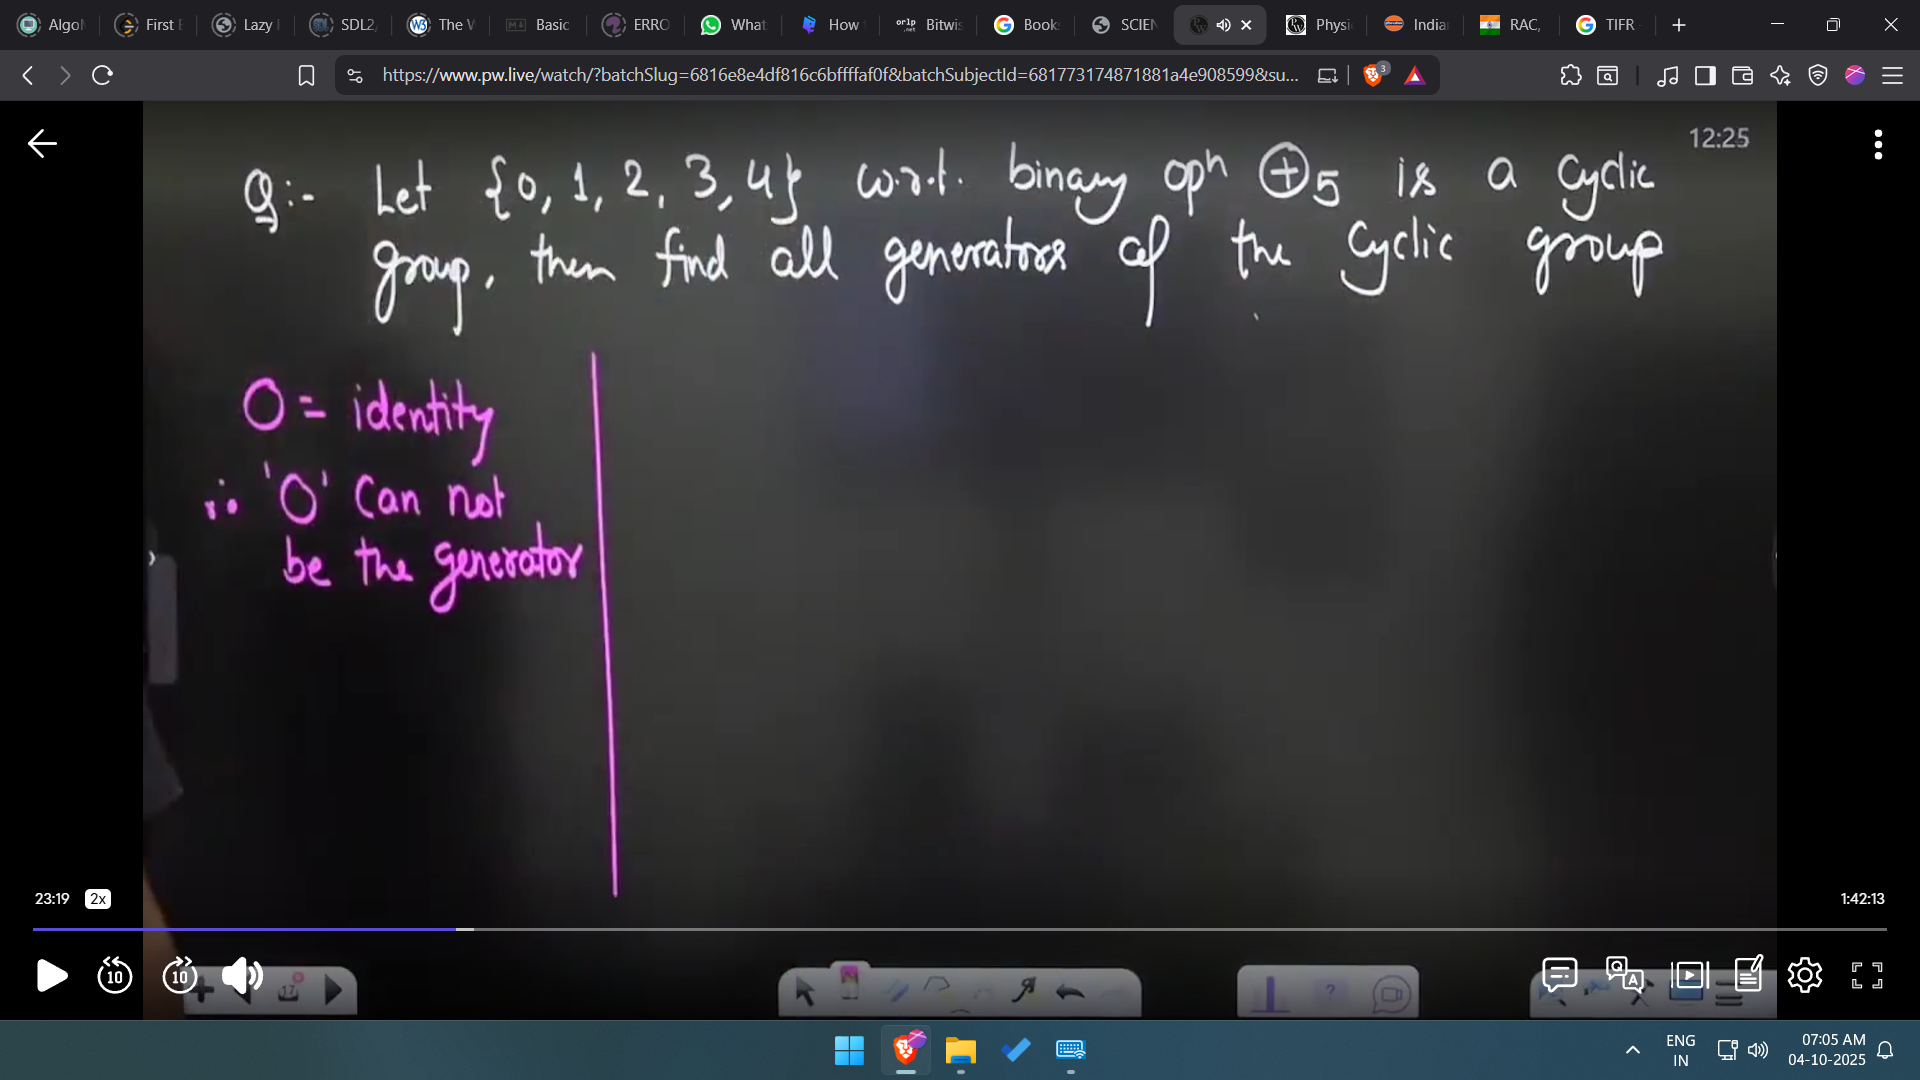 Algo
First
Lazy
SDL2
The W
Basic
ERRO
What
How
orlp .net
Bitwis
Book
SCIEN
Physi
India
RAC,
TIFR
https://www.pw.live/watch/?batchSlug=6816e8e4df816c6bffffaf0f&batchSubjectId=681773174871881a4e908599&su...
3
12:25
Q:- Let {0, 1, 2, 3, 4} w.r.t. binary opn ⊕5 is a cyclic
group, then find all generators of the cyclic group
0 = identity
∴ '0' can not
be the generator
23:19 2x
1:42:13
10 10
17
?
ENG
IN
07:05 AM
04-10-2025